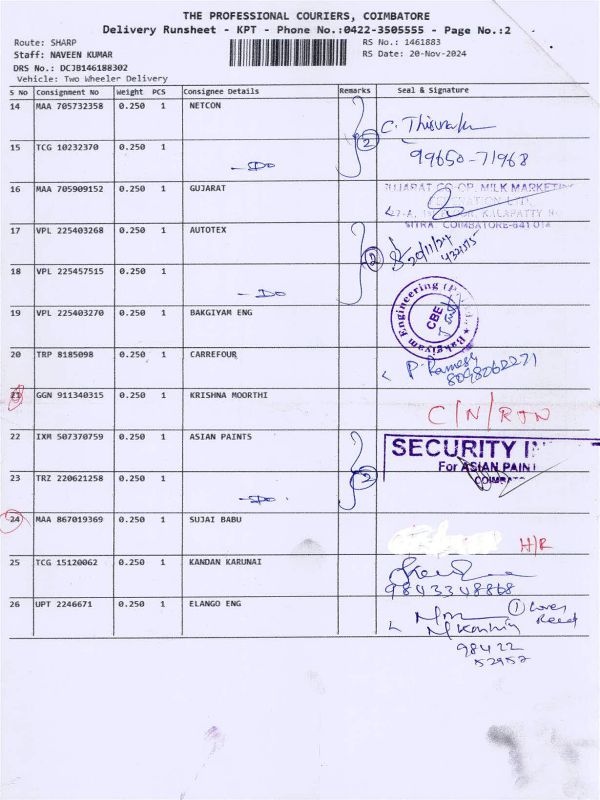 THE PROFESSIONAL COURIERS, COIMBATORE
Delivery Runsheet - KPT - Phone No.:0422-3505555 - Page No.:2
Route: SHARP RS No.: 1461883
Staff: NAVEEN KUMAR RS Date: 20-Nov-2024
DRS No.: DCJB146188302
Vehicle: Two Wheeler Delivery
S No Consignment No Weight PCS Consignee Details Remarks Seal & Signature
14 MAA 705732358 0.250 1 NETCON
2 C.
15 TCG 10232370 0.250 1 99650-71968
-Do
16 MAA 705909152 0.250 1 GUJARAT GUJARAT CO-OP. MILK MARKETING
KALAPATTY
SITRA, COIMBATORE-641 014
17 VPL 225403268 0.250 1 AUTOTEX
2 20/11/24
18 VPL 225457515 0.250 1
-Do
19 VPL 225403270 0.250 1 BAKGIYAM ENG Bakgiyam Engineering (P) CBE
20 TRP 8185098 0.250 1 CARREFOUR P. Ramesh
8098062271
21 GGN 911340315 0.250 1 KRISHNA MOORTHI
C/N/RTN
22 IXM 507370759 0.250 1 ASIAN PAINTS SECURITY
For ASIAN PAINT
23 TRZ 220621258 0.250 1 2
-Do
24 MAA 867019369 0.250 1 SUJAI BABU
H/R
25 TCG 15120062 0.250 1 KANDAN KARUNAI
9843348868
26 UPT 2246671 0.250 1 ELANGO ENG 1
98422
52957